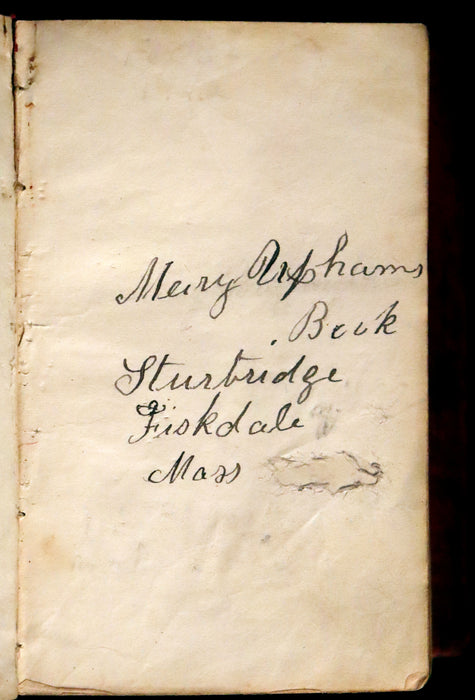 Mary Upham's
Book
Sturbridge
Fiskdale
Mass